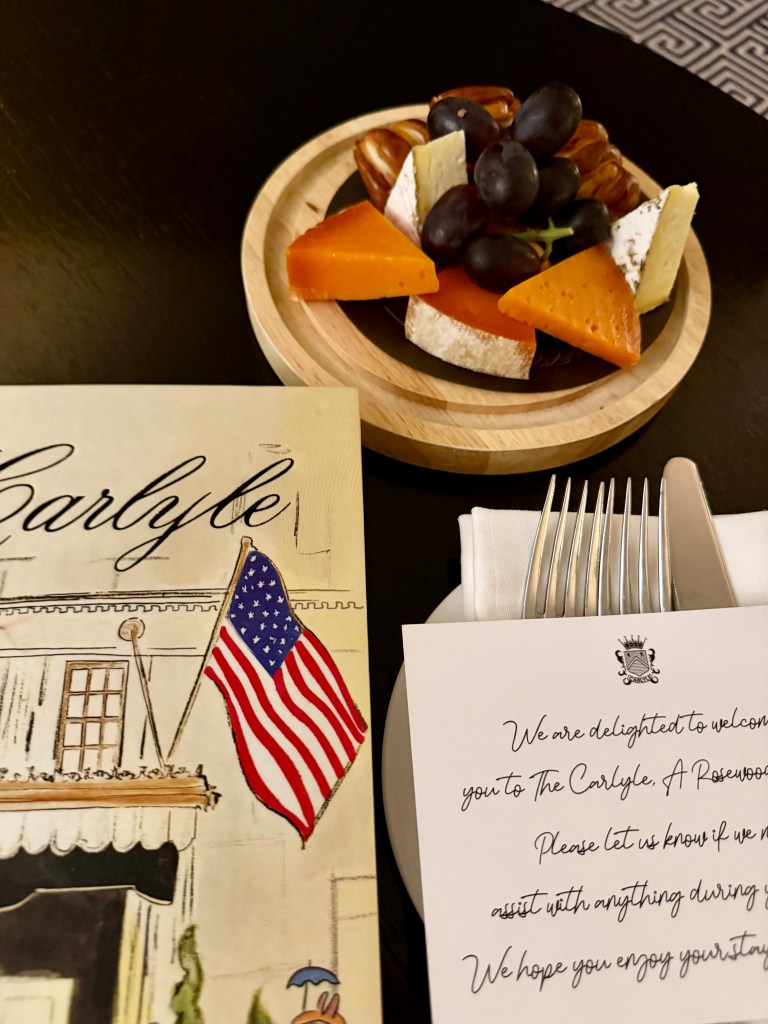 Carlyle
CARLYLE
We are delighted to welcom
you to The Carlyle, A Rosewood
Please let us know if we m
assist with anything during y
We hope you enjoy your stay